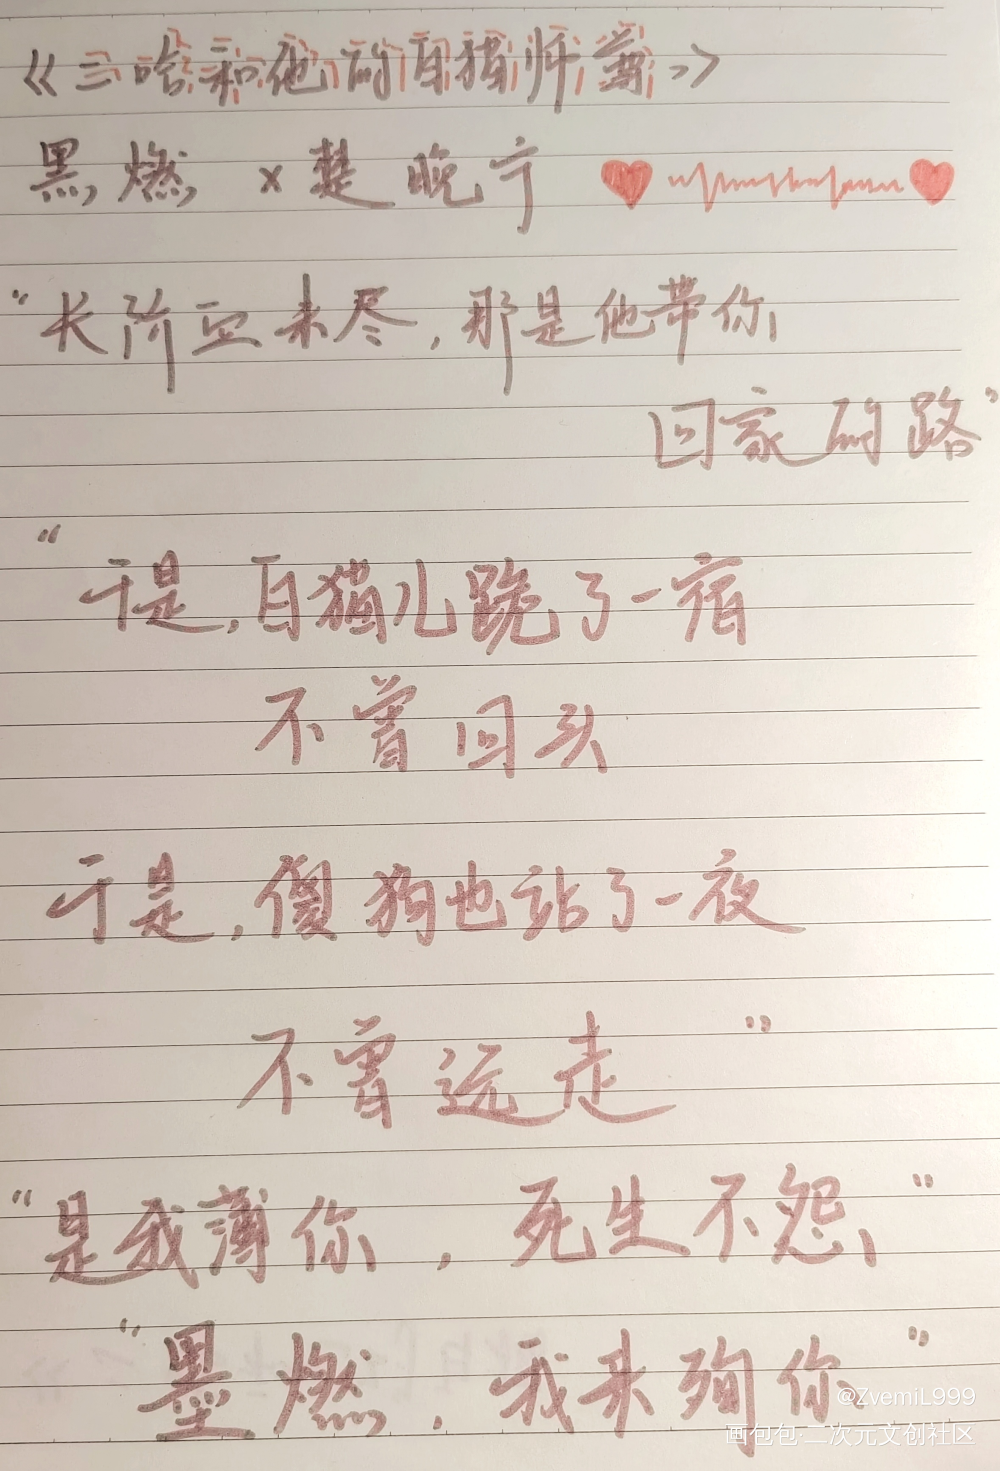 《二哈和他的白猫师尊》
黑燃 × 楚晚宁
“长阶血未尽，那是他带你
回家的路”
“
于是，白猫儿跪了一宿
不曾回头
于是，傻狗也站了一夜
不曾远走”
“是我薄你，死生不怨”
“墨燃，我来殉你”
@ZvemiL999
画包包·二次元文创社区